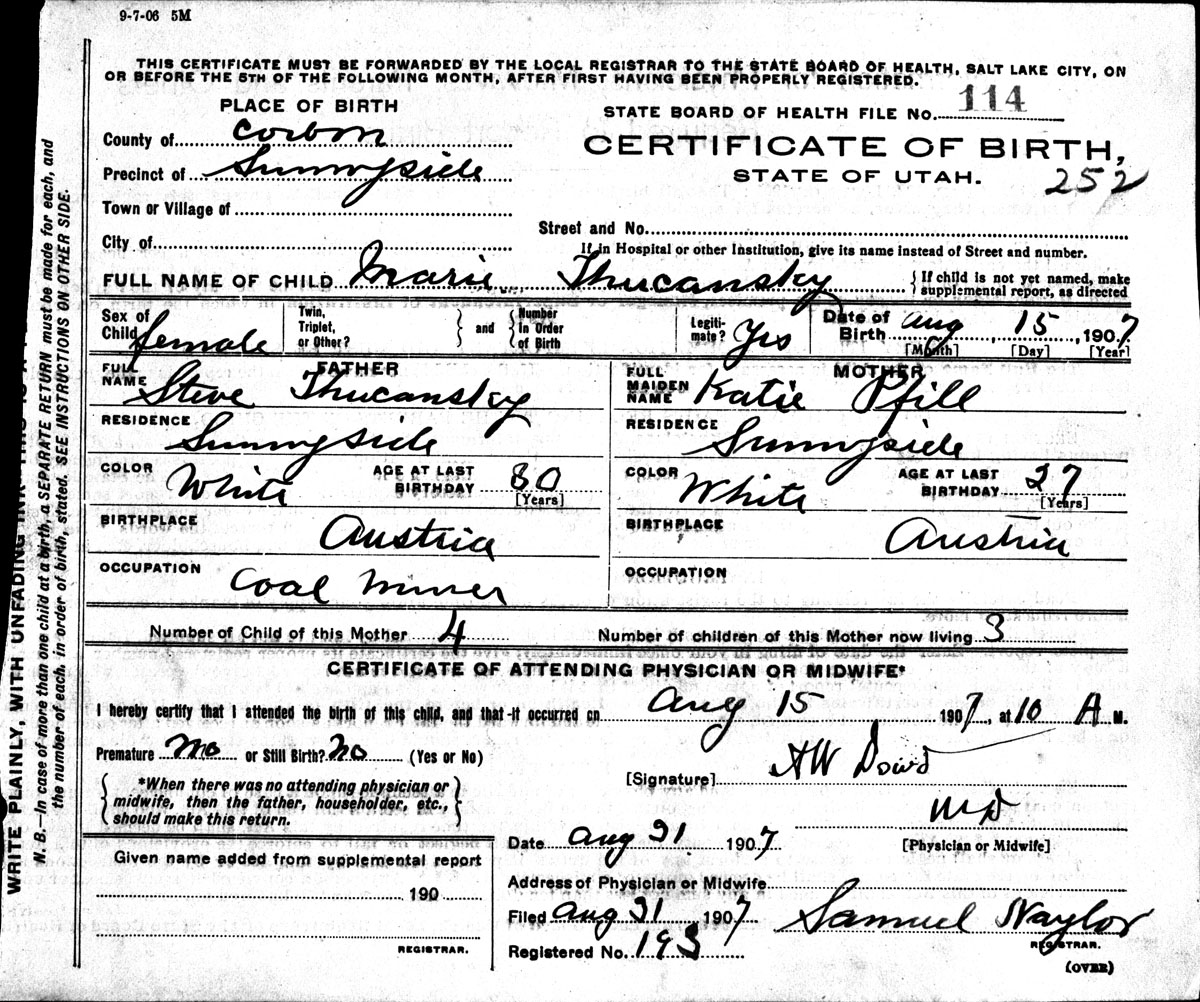 9-7-06 5M
THIS CERTIFICATE MUST BE FORWARDED BY THE LOCAL REGISTRAR TO THE STATE BOARD OF HEALTH, SALT LAKE CITY, ON
OR BEFORE THE 5TH OF THE FOLLOWING MONTH, AFTER FIRST HAVING BEEN PROPERLY REGISTERED.
PLACE OF BIRTH
STATE BOARD OF HEALTH FILE No. 114
County of Corbon
CERTIFICATE OF BIRTH,
Precinct of Sunnyside
STATE OF UTAH.
252
Town or Village of
Street and No.
City of
If in Hospital or other Institution, give its name instead of Street and number.
FULL NAME OF CHILD Marie Thucansky {If child is not yet named, make supplemental report, as directed
Sex of Child female Twin, Triplet, or Other? } and { Number in Order of Birth Legiti-mate? Yes Date of Birth Aug 15, 1907
[Month] [Day] [Year]
FATHER MOTHER
FULL NAME Steve Thucansky FULL MAIDEN NAME Katie Pfill
RESIDENCE Sunnyside RESIDENCE Sunnyside
COLOR White AGE AT LAST BIRTHDAY 30 [Years] COLOR White AGE AT LAST BIRTHDAY 27 [Years]
BIRTHPLACE Austria BIRTHPLACE Austria
OCCUPATION Coal Miner OCCUPATION
Number of Child of this Mother 4 Number of children of this Mother now living 3
CERTIFICATE OF ATTENDING PHYSICIAN OR MIDWIFE*
I hereby certify that I attended the birth of this child, and that it occurred on Aug 15 1907, at 10 A M.
Premature No or Still Birth? No (Yes or No)
[Signature] AW Dowd
{ *When there was no attending physician or
midwife, then the father, householder, etc.,
should make this return. }
MD
[Physician or Midwife]
Date Aug 31 1907
Given name added from supplemental report
190
REGISTRAR.
Address of Physician or Midwife
Filed Aug 31 1907 Samuel Naylor
REGISTRAR.
Registered No. 193
(OVER)
WRITE PLAINLY, WITH UNFADING INK
N. B.—In case of more than one child at a birth, a SEPARATE RETURN must be made for each, and
the number of each, in order of birth, stated. SEE INSTRUCTIONS ON OTHER SIDE.